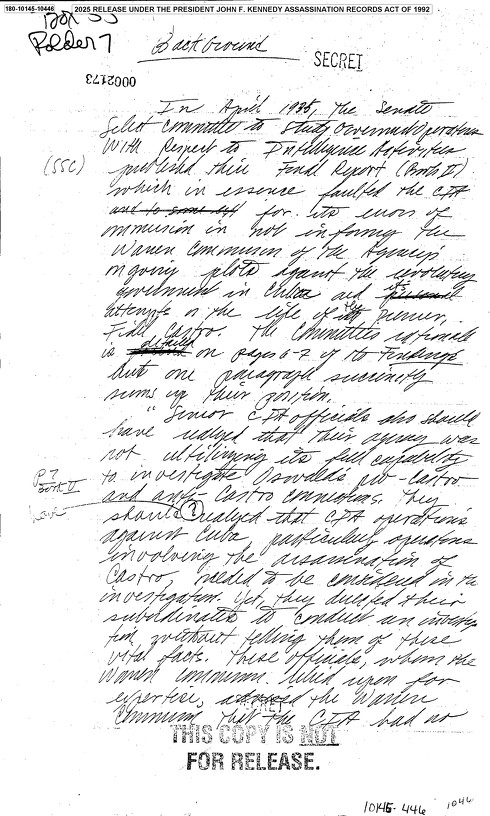 180-10145-10446
2025 RELEASE UNDER THE PRESIDENT JOHN F. KENNEDY ASSASSINATION RECORDS ACT OF 1992
Box 33
Folder 7
Background
SECRET
0002173
In April 1975, the Senate
Select Committee to Study Government Operations
With Respect to Intelligence Activities
(SSC)
published their Final Report (Book V)
which in essence faulted the CIA
and to some for its errors of
ommission in not informing the
Warren Commission of the Agency's
ongoing plots against the revolutionary
government in Cuba and its
attempts on the life of its the Premier,
Fidel Castro. The Committee's rationale
is detailed on pages 6-7 of its Findings
but one paragraph succinctly
sums up their position.
"Senior CIA officials also should
have realized that their agency was
not utilizing its full capability
to investigate Oswald's pro-Castro
P. 7
Book V
and anti-Castro connections. They
have
should (?) realized that CIA operations
against Cuba, particularly operations
involving the assassination of
Castro, needed to be considered in the
investigation. Yet, they directed their
subordinates to conduct an investiga-
tion without telling them of these
vital facts. These officials, whom the
Warren Commission relied upon for
expertise, advised the Warren
Commission that the CIA had no
THIS COPY IS NOT
FOR RELEASE.
10145-446
1046